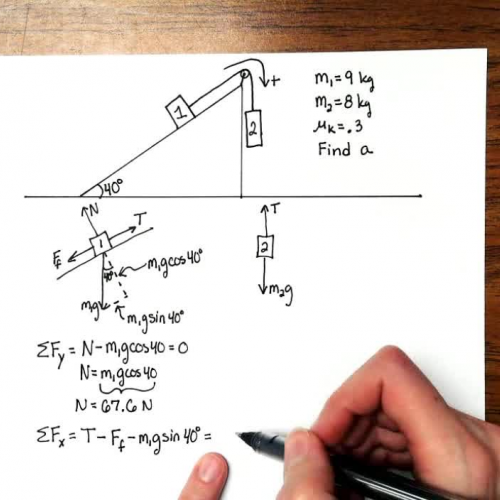 1
+
2
40°
m₁ = 9 kg
m₂ = 8 kg
μₖ = .3
Find a
N
T
F_f
1
40°
m₁g cos 40°
m₁g
m₁g sin 40°
T
2
m₂g
ΣF_y = N - m₁g cos 40 = 0
N = m₁g cos 40
N = 67.6 N
ΣF_x = T - F_f - m₁g sin 40° =